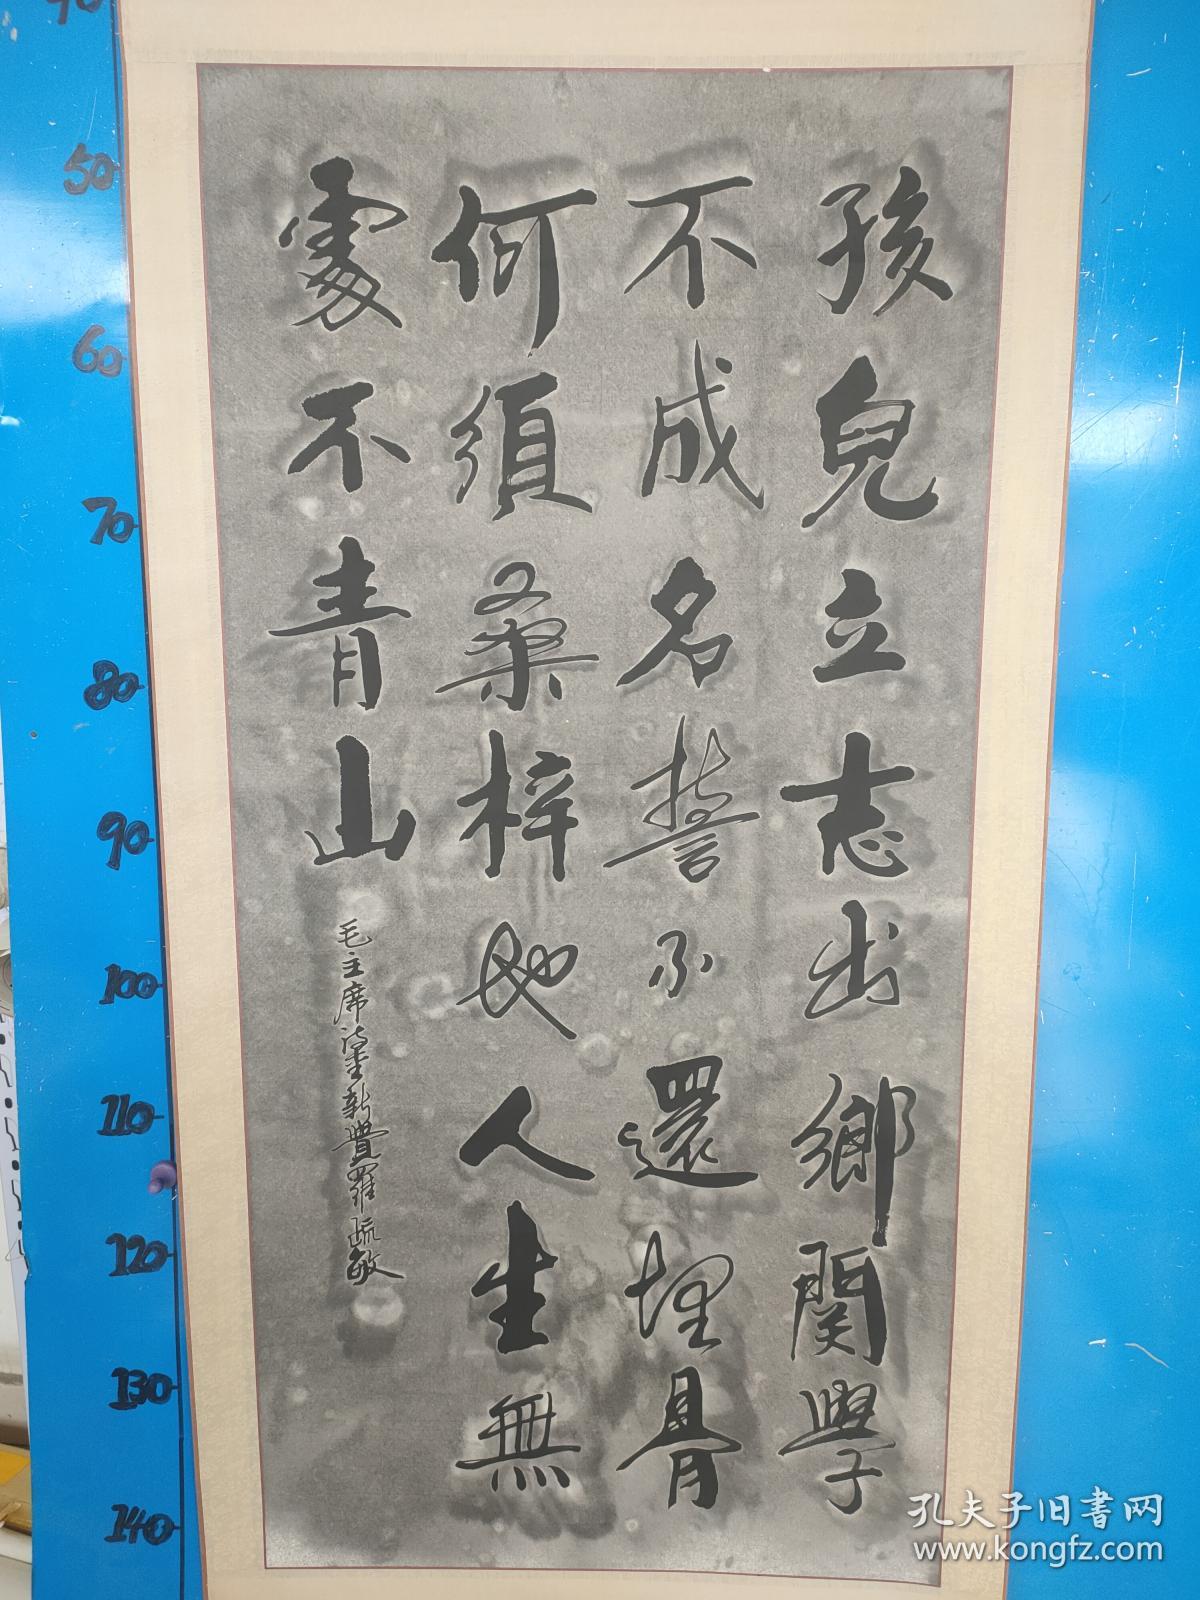 孩兒立志出鄉関學
不成名誓不還埋骨
何須桑梓地人生無
處不青山
毛主席
新
羅疏敏
50
60
70
80
90
100
110
120
130
140
孔夫子旧书网
www.kongfz.com